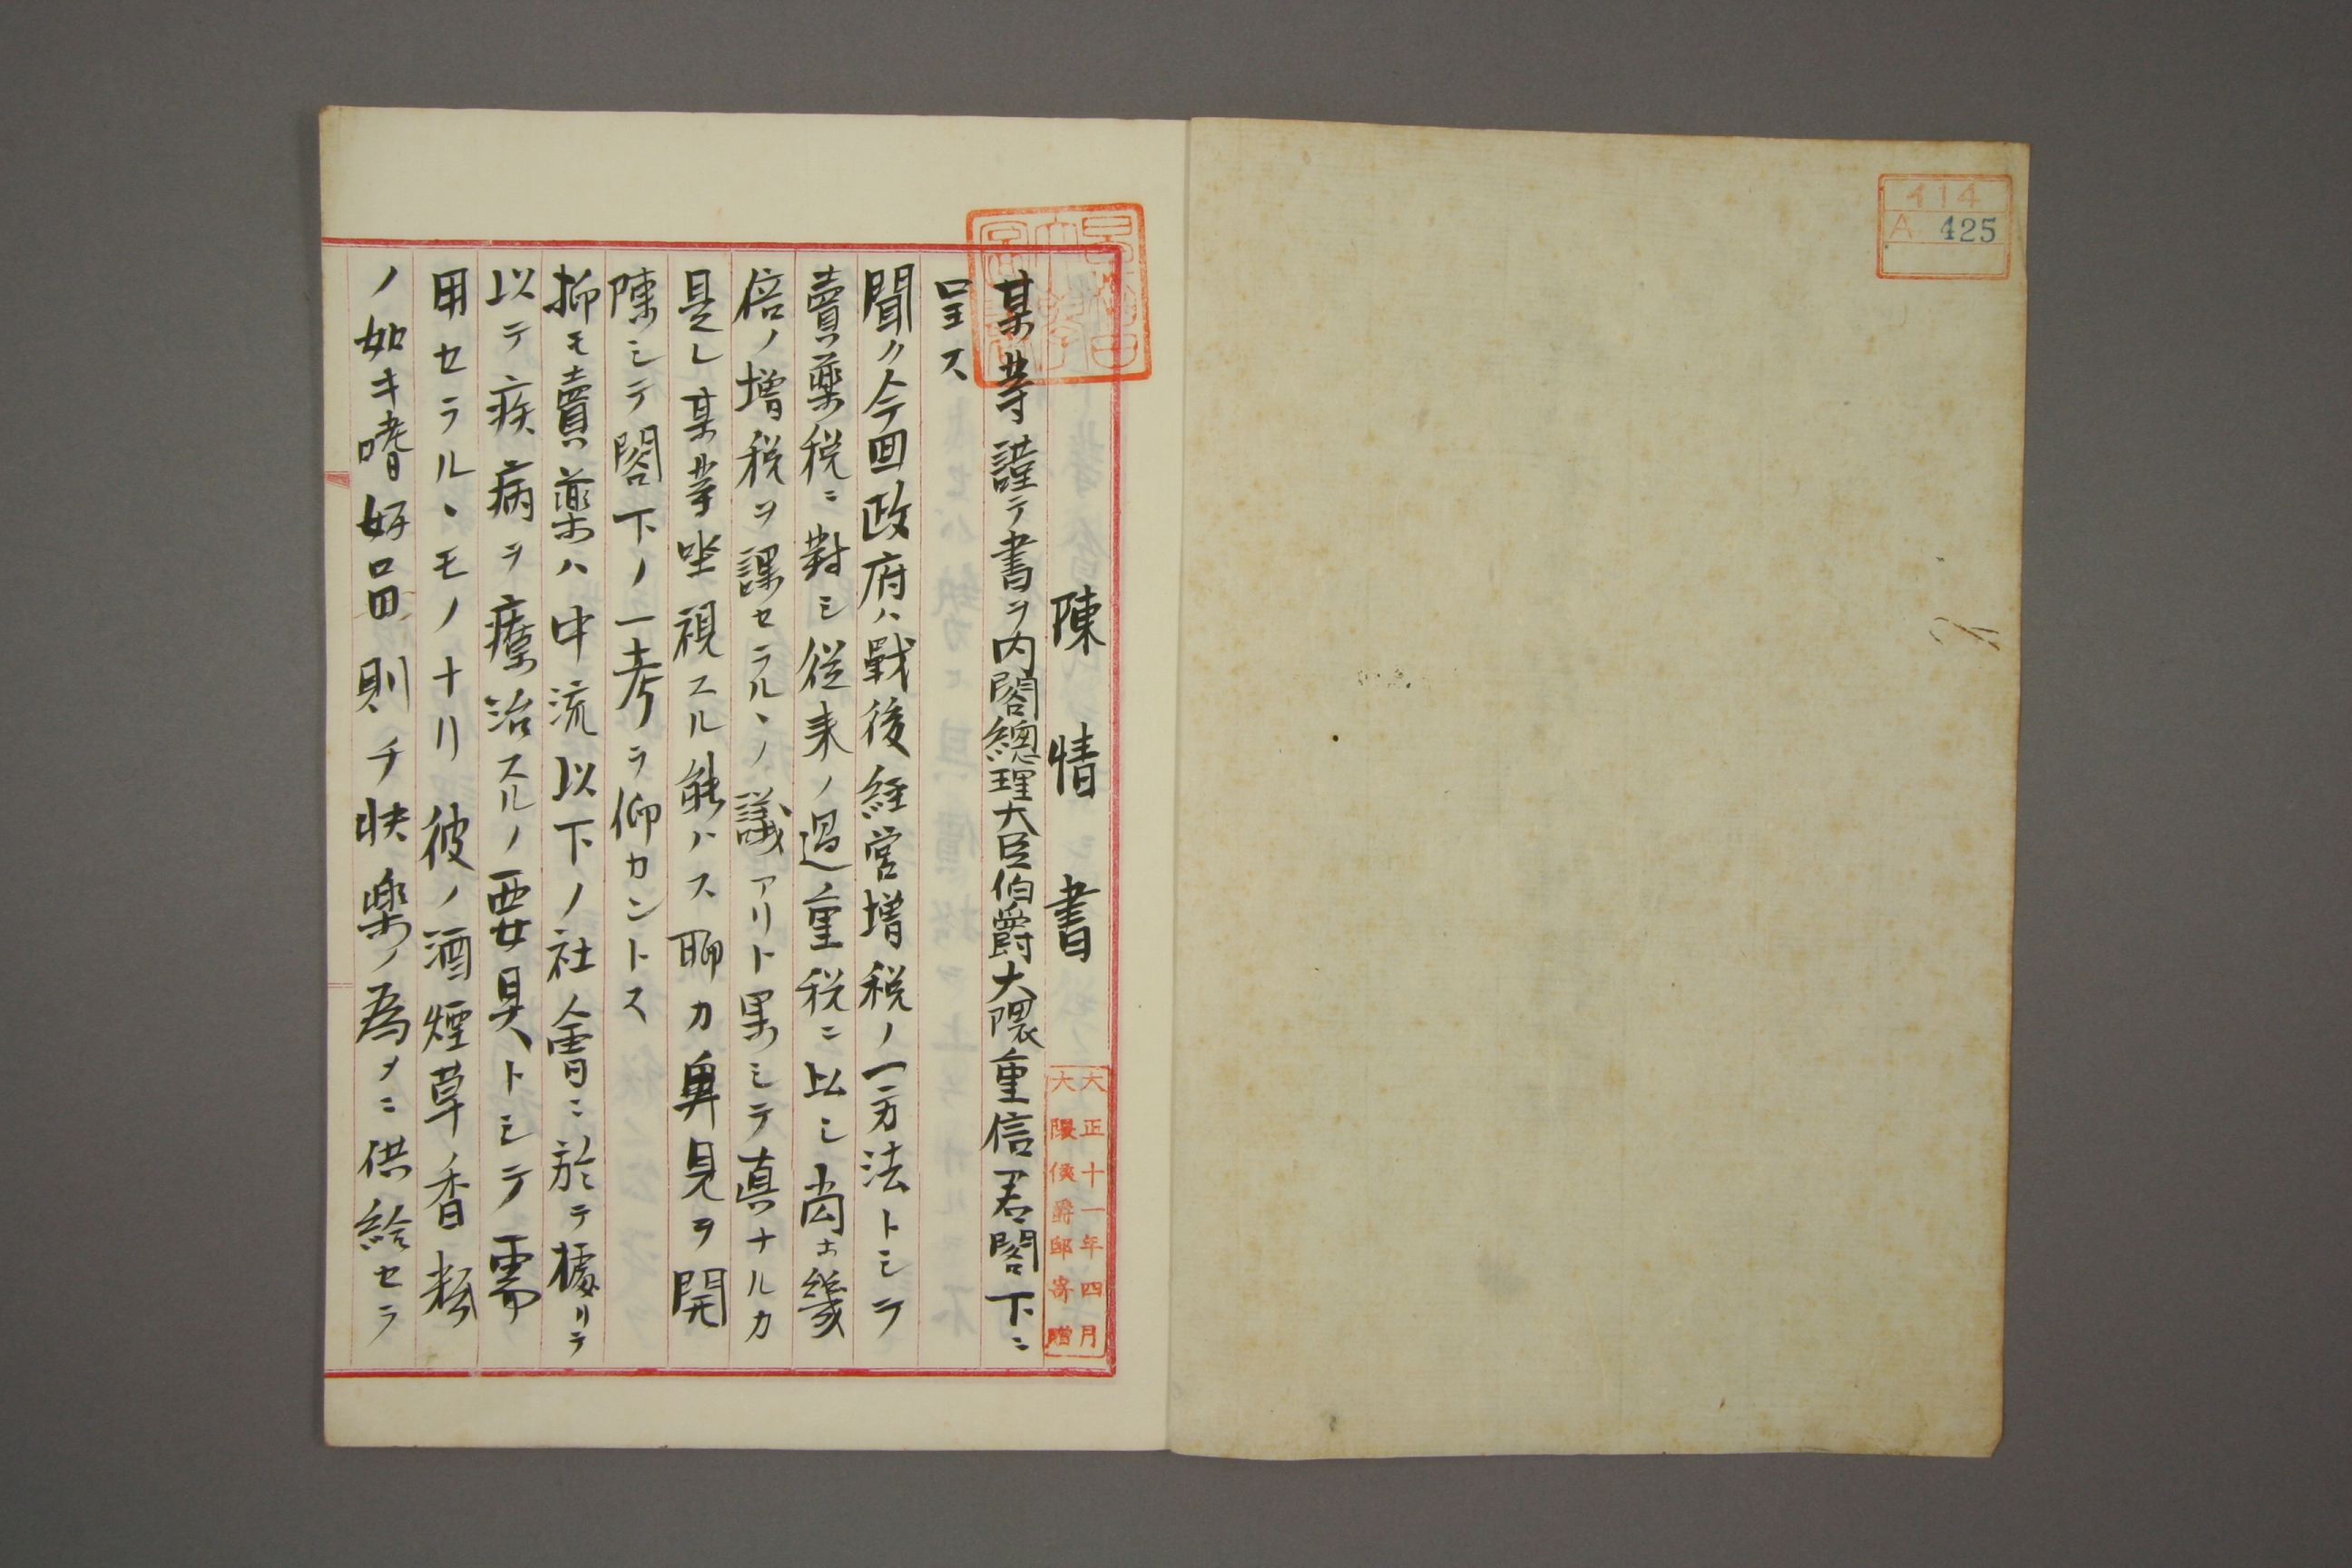 414
A 425
陳情書
大正十一年四月
大隈侯爵邸寄贈
某等謹テ書ヲ内閣總理大臣伯爵大隈重信君閣下ニ
呈ス
聞ク今回政府ハ戰後経営増税ノ一方法トシテ
賣藥税ニ對シ従来ノ過重税ニ比シ尚ホ幾
倍ノ増税ヲ課セラルヽノ議アリト果シテ真ナルカ
是レ某等坐視スル能ハス聊カ卑見ヲ開
陳シテ閣下ノ一考ヲ仰カントス
抑モ賣藥ハ中流以下ノ社會ニ於テ據リテ
以テ疾病ヲ療治スルノ要具トシテ需
用セラルヽモノナリ彼ノ酒煙草ノ香粧
ノ如キ嗜好品則チ快樂ノ為メニ供給セラ